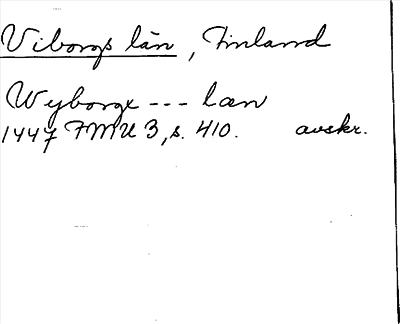 Viborgs län, Finland
Wyborge --- læn
1447 FMU 3, s. 410. avskr.